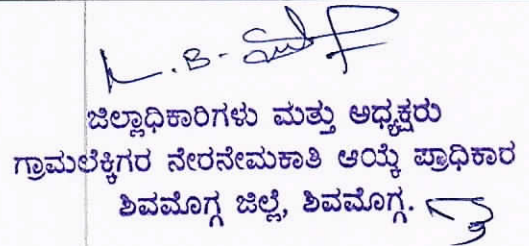 ಜಿಲ್ಲಾಧಿಕಾರಿಗಳು ಮತ್ತು ಅಧ್ಯಕ್ಷರು
ಗ್ರಾಮಲೆಕ್ಕಿಗರ ನೇರನೇಮಕಾತಿ ಆಯ್ಕೆ ಪ್ರಾಧಿಕಾರ
ಶಿವಮೊಗ್ಗ ಜಿಲ್ಲೆ, ಶಿವಮೊಗ್ಗ.